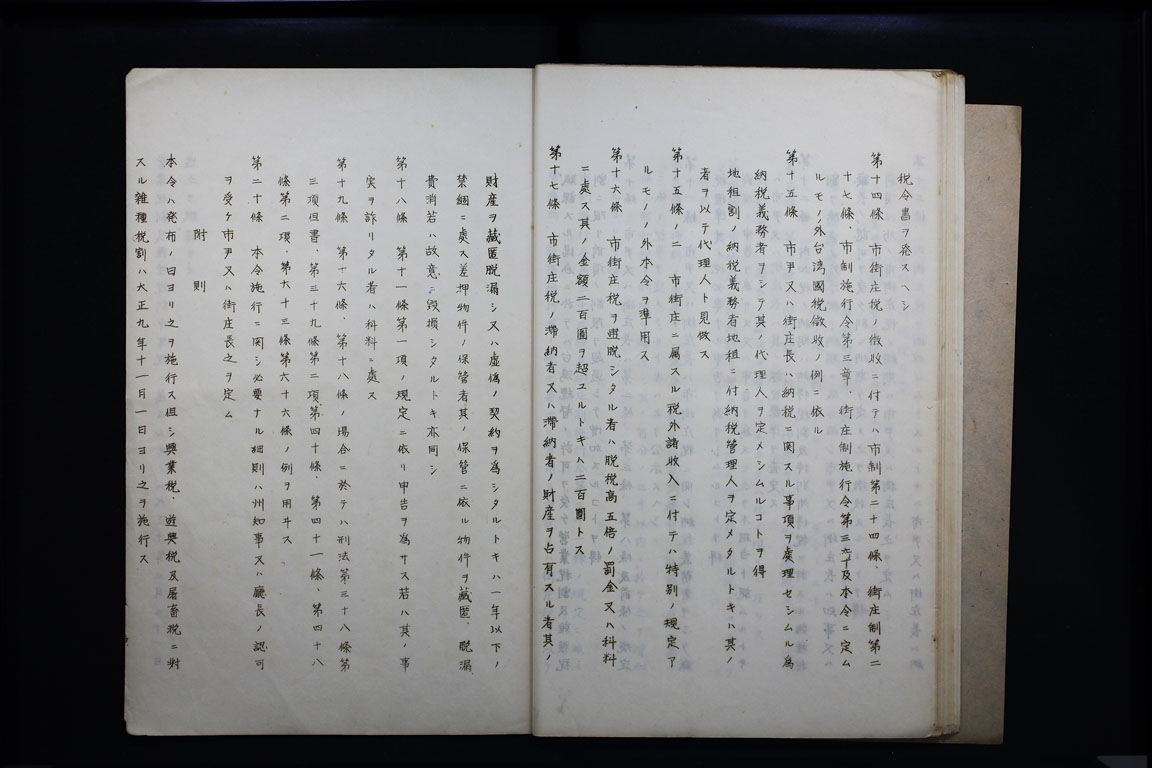 税令書ヲ発スヘシ
第十四條 市街庄税ノ徴收ニ付テハ市制第二十四條、街庄制第二
十七條、市制施行令第三章、街庄制施行令第三章及本令ニ定ム
ルモノノ外台湾國税徴收ノ例ニ依ル
第十五條 市尹又ハ街庄長ハ納税ニ関スル事項ヲ處理セシムル為
納税義務者ヲシテ其ノ代理人ヲ定メシムルコトヲ得
地租割ノ納税義務者地租ニ付納税管理人ヲ定メタルトキハ其ノ
者ヲ以テ代理人ト見做ス
第十五條ノ二 市街庄ニ属スル税外諸收入ニ付テハ特別ノ規定ア
ルモノノ外本令ヲ準用ス
第十六條 市街庄税ヲ逋脱シタル者ハ脱税高五倍ノ罰金又ハ科料
ニ處ス其ノ金額二百圓ヲ超ユルトキハ二百圓トス
第十七條 市街庄税ノ滞納者又ハ滞納者ノ財産ヲ占有スル者其ノ
財産ヲ藏匿脱漏シ又ハ虚偽ノ契約ヲ為シタルトキハ一年以下ノ
禁錮ニ處ス差押物件ノ保管者其ノ保管ニ依ル物件ヲ藏匿、脱漏
費消若ハ故意ニ毀損シタルトキ亦同シ
第十八條 第十一條第一項ノ規定ニ依リ申告ヲ為サス若ハ其ノ事
実ヲ詐リタル者ハ科料ニ處ス
第十九條 第十六條、第十八條ノ場合ニ於テハ刑法第三十八條第
三項但書、第三十九條第二項、第四十條、第四十一條、第四十八
條第二項、第六十三條第六十六條ノ例ヲ用ヰス
第二十條 本令施行ニ関シ必要ナル細則ハ州知事又ハ廳長ノ認可
ヲ受ケ市尹又ハ街庄長之ヲ定ム
附 則
本令ハ発布ノ日ヨリ之ヲ施行ス但シ興業税、遊興税及屠畜税ニ對
スル雜種税割ハ大正九年十一月一日ヨリ之ヲ施行ス